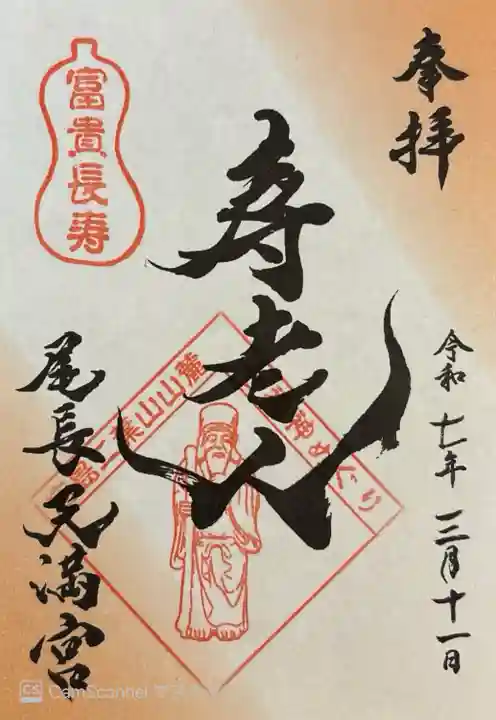 奉拝
寿老人
令和七年三月十一日
富貴長寿
島二葉山山麓
神めぐり
尾長天満宮
CS CamScanner